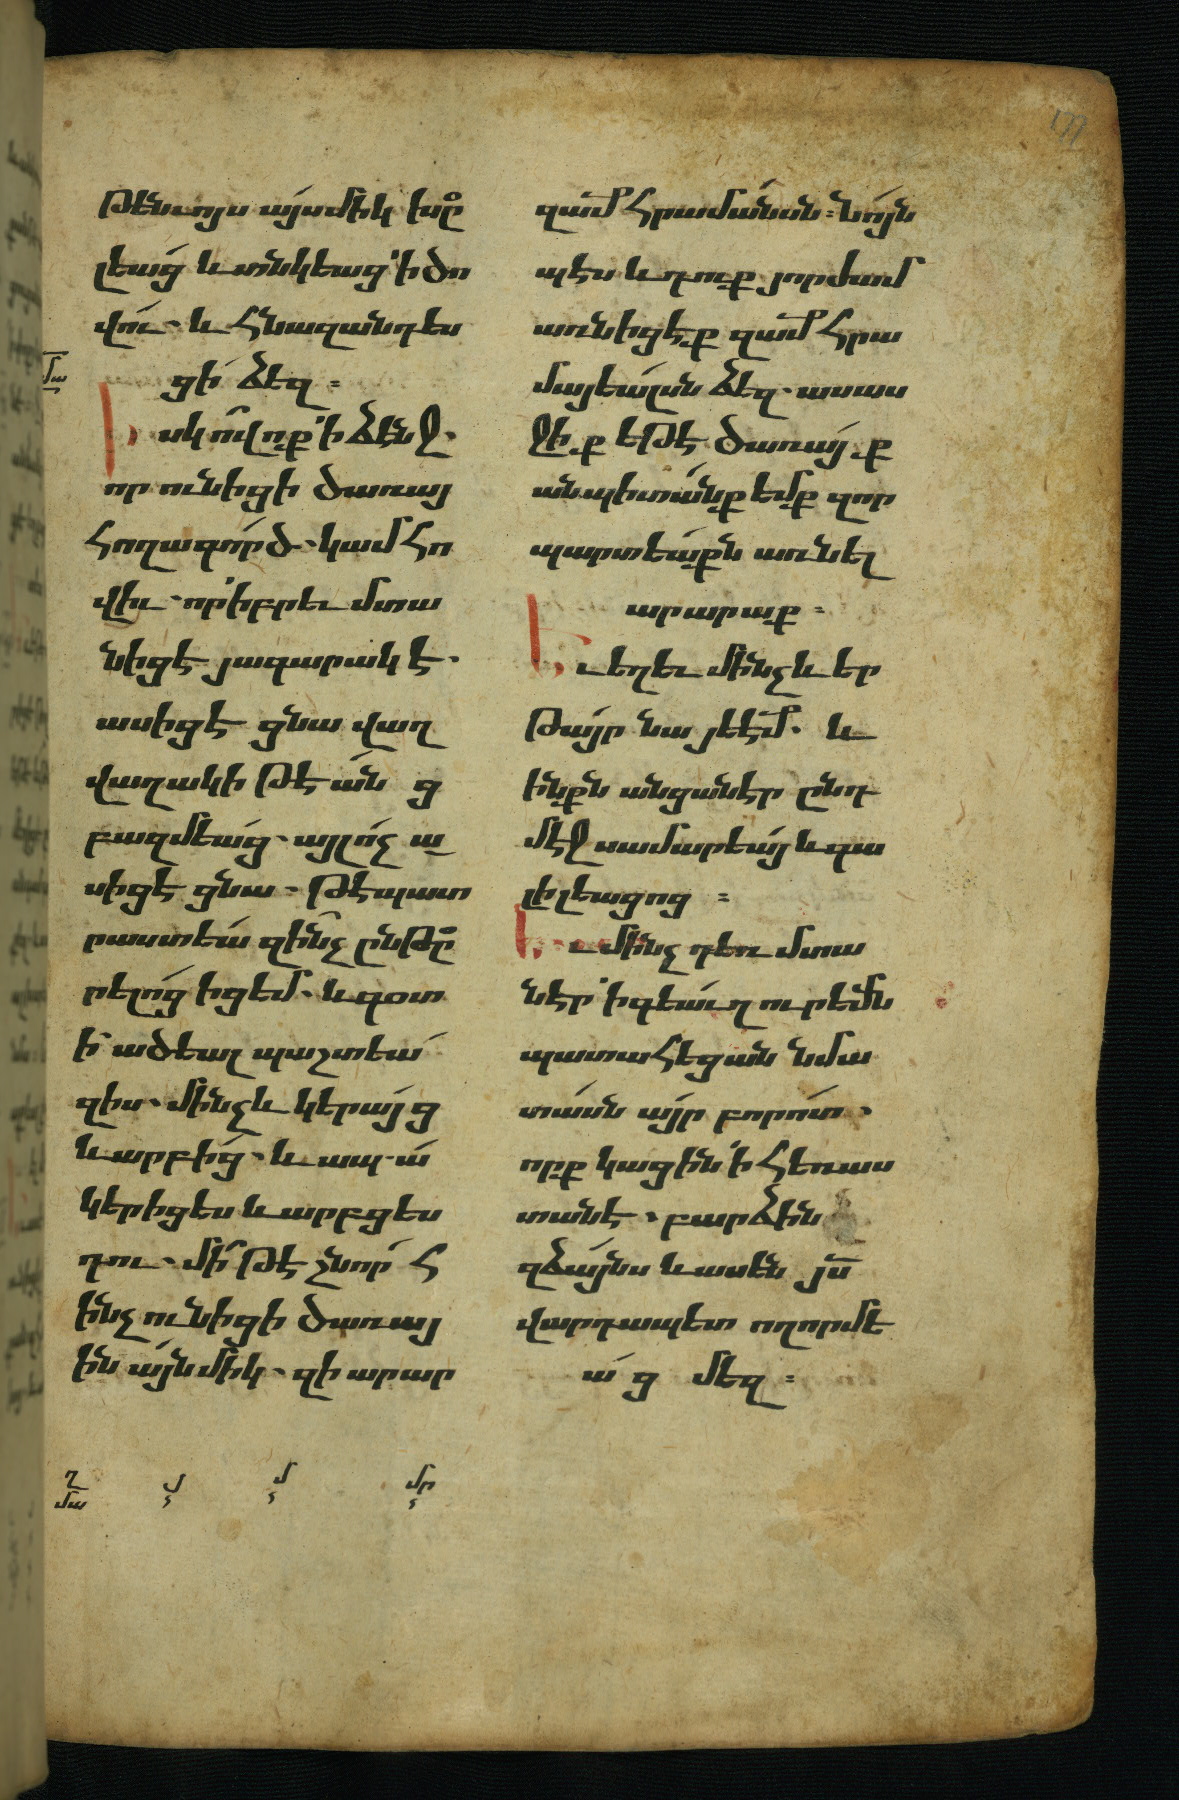 177
թենւոյս այսմիկ խը
լեաց և տնկեաց ՚ի ծո
վու․ և հնազանդես
ցի ձեզ։
Իսկ ո՞վ ոք ՚ի ձէնջ․
որ ունիցի ծառայ
հողագործ․ կամ հո
վիւ․ որ իբրև մտա
նիցէ յագարակէ․
ասիցէ ցնա վաղ
վաղակի թէ ան ց
բազմեաց․ այլ ոչ ա
սիցէ ցնա․ թէ պատ
րաստեա զինչ ընթը
րելոց իցեմ․ և գօտ
ի ածեալ պաշտեա
զիս․ մինչև կերայց
և արբից․ և ապ ա
կերիցես և արբցես
դու․ մի՞ թէ շնոր հ
ինչ ունիցի ծառայ
ին այնմիկ․ զի արար
զամ՟ հրամանսն։ նոյն
պէս և դուք յորժամ
առնիցէք զամ՟ հրա
մայեալսն ձեզ․ ասաս
ջիք եթէ ծառայք
անպիտանք եմք զոր
պարտեաքն առնել
արարաք։
Եւ եղև մինչև եր
թայր նա յէէմ՟․ և
ինքն անցանէր ընդ
մէջ սամարեայ և գա
լիլեացոց։
Եւ մինչ դեռ մտա
նէր ՚ի գեաւղ ուրեմն
պատահեցան նմա
տասն այր բորոտ․
որք կացին ՚ի հեռաս
տանէ․ բարձին
զձայնս և ասեն յս՟
վարդապետ ողորմե
ա ց մեզ։